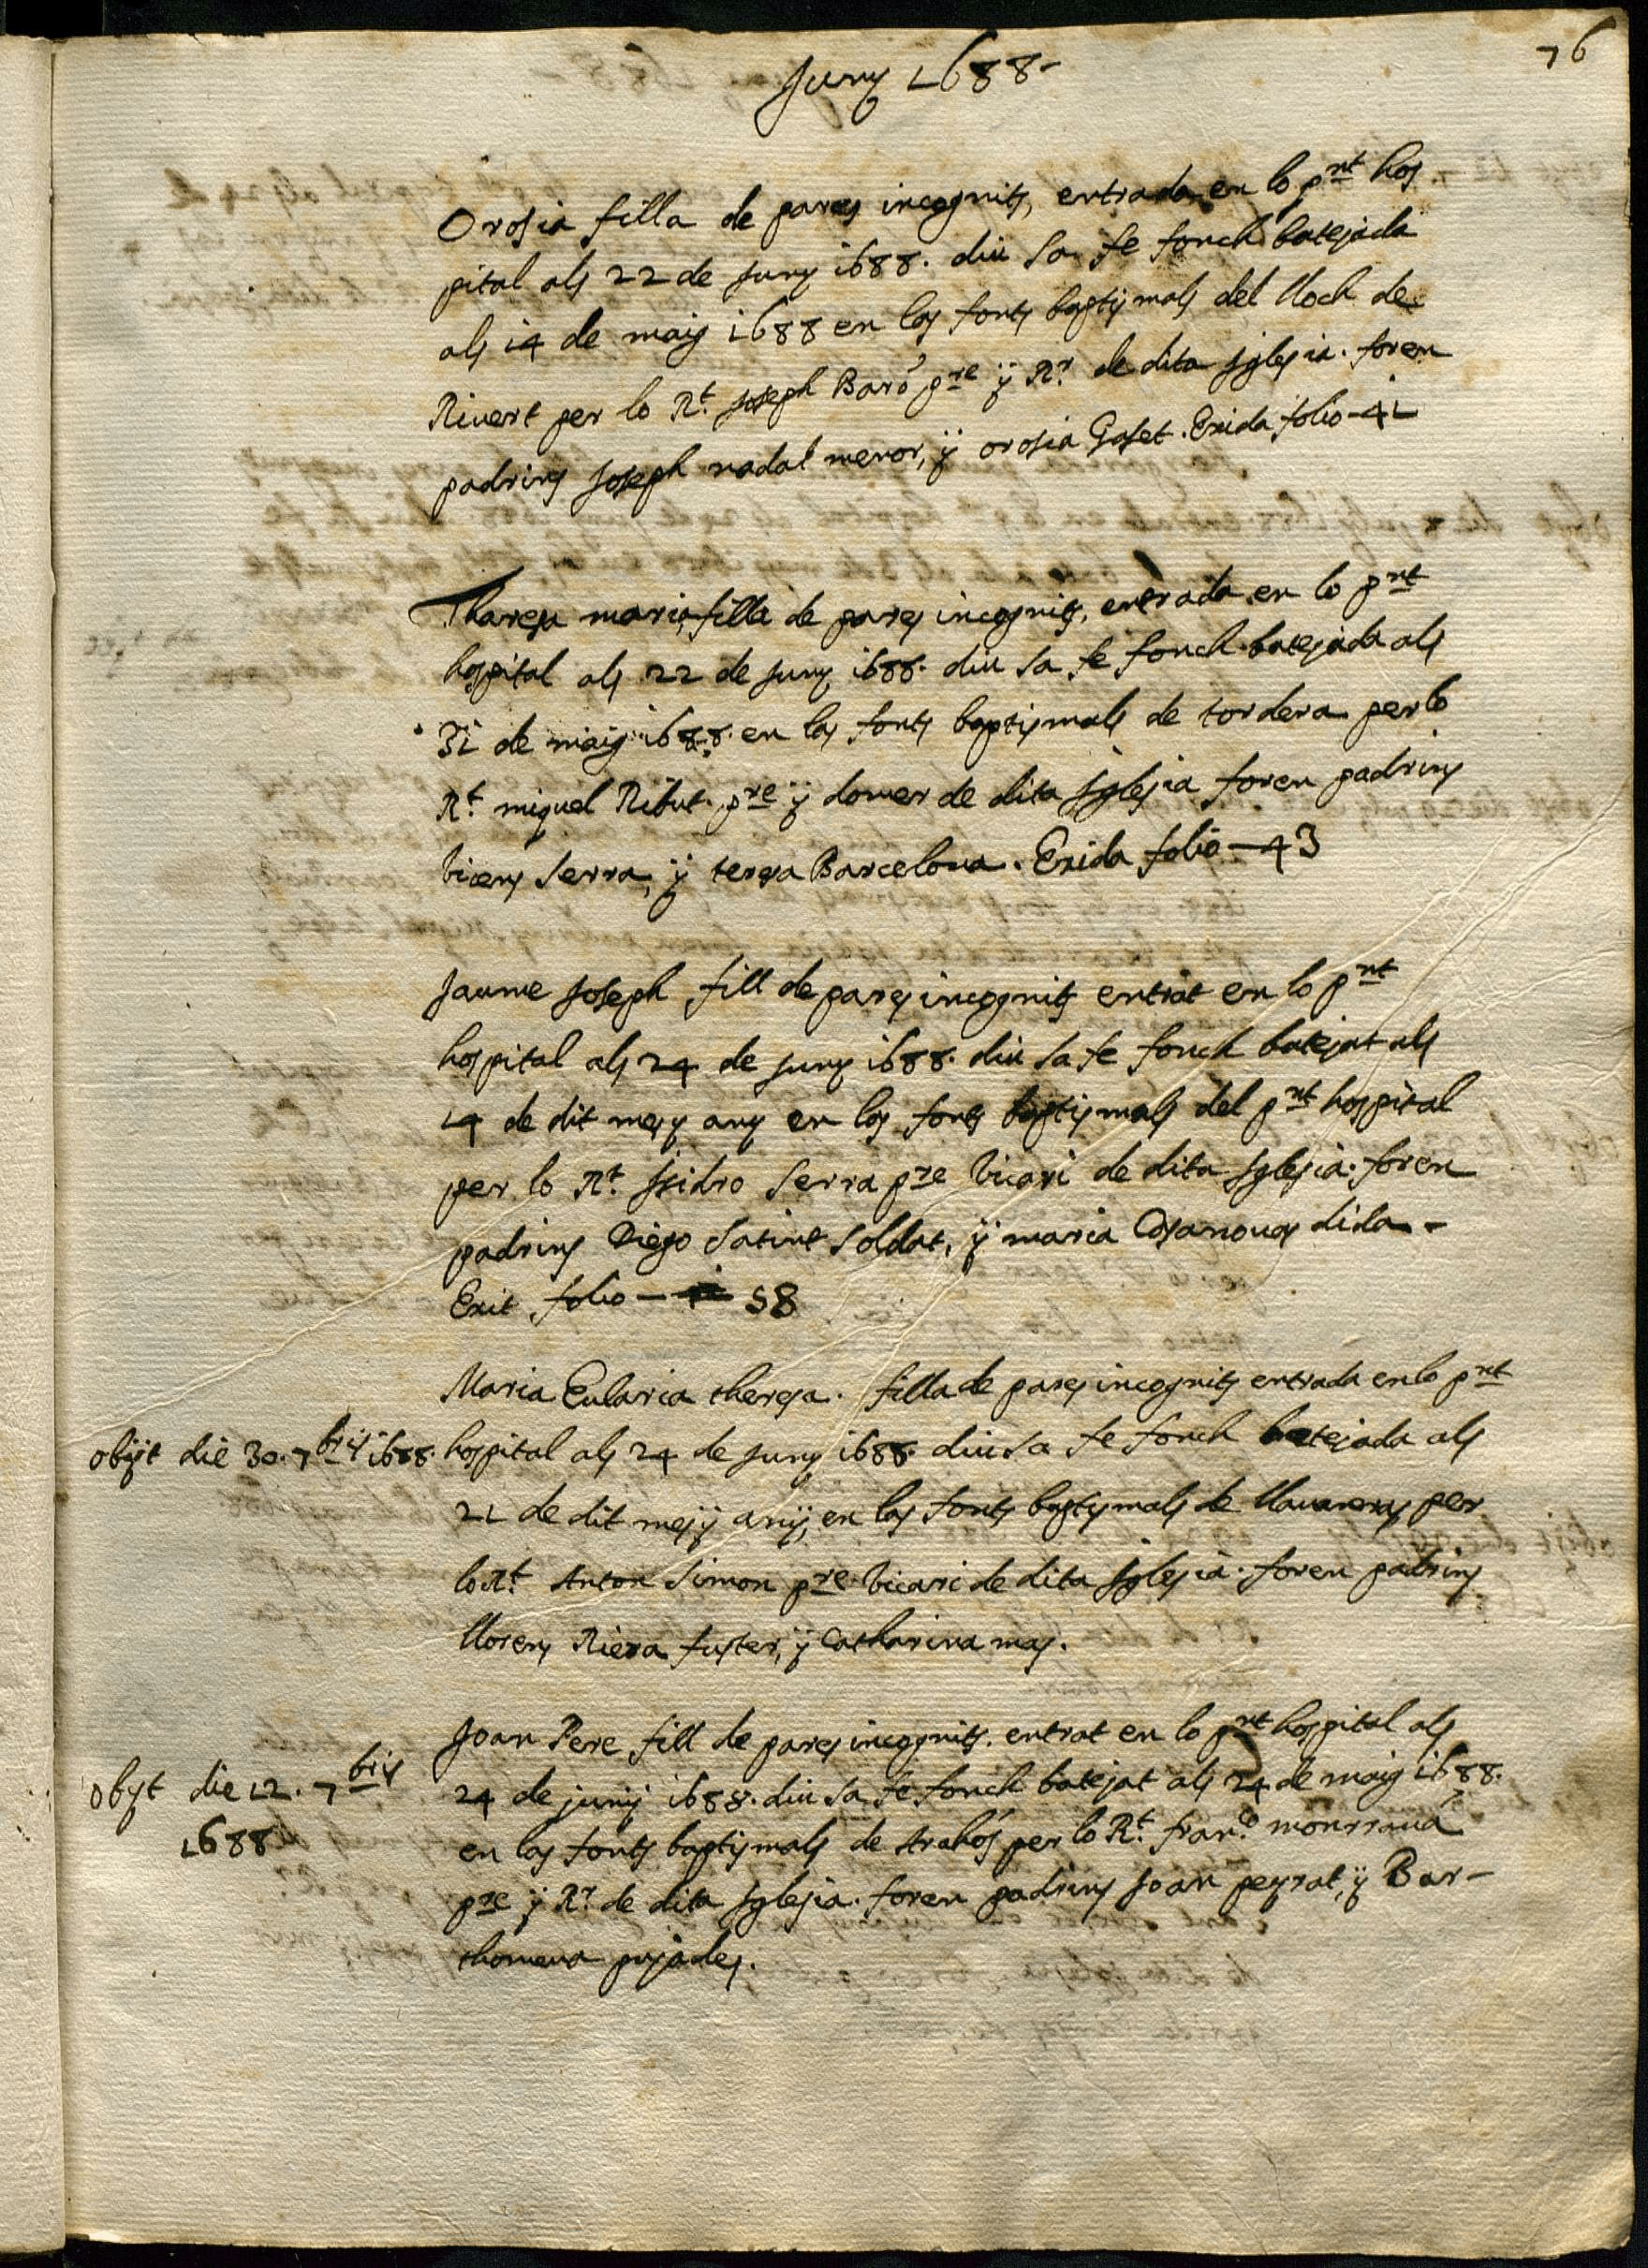 76
Juny 1688-
Orosia filla de pares incognits, entrada en lo pnt hos
pital als 22 de juny 1688. diu sa fe fonch batejada
als 14 de maig 1688 en las fonts baptismals del lloch de
Rivert per lo Rt. Joseph Baró pre ÿ Rr. de dita Iglesia. foren
padrins Joseph nadal menor, ÿ orosia Gaset. Exida folio-41
Tharesa maria filla de pares incognits, entrada en lo pnt
hospital als 22 de juny 1688. diu sa fe fonch batejada als
31 de maig 1688. en las fonts baptismals de tordera per lo
Rt. miquel Ribut pre ÿ domer de dita Iglesia foren padrins
vicens Serra, ÿ teresa Barcelona. Exida folio-43
Jaume Joseph fill de pares incognits entrat en lo pnt
hospital als 24 de juny 1688. diu sa fe fonch batejat als
14 de dit mes y any en las fonts baptismals del pnt hospital
per lo Rt. Isidro Serra pre vicari de dita Iglesia. foren
padrins Diego Satint soldat, ÿ maria Casanovas dida-
Exit folio - 58
Maria Eularia theresa. filla de pares incognits entrada en lo pnt
obijt die 30. 7bris 1688. hospital als 24 de juny 1688. diu sa fe fonch batejada als
21 de dit mes ÿ anÿ, en las fonts baptismals de llavaneras per
lo Rt. Anton Simon pre vicari de dita Iglesia. foren padrins
llorens Riera fuster, ÿ Catharina mas.
Joan Pere fill de pares incognits. entrat en lo pnt hospital als
obijt die 12. 7bris 24 de junij 1688. diu sa fe fonch batejat als 24 de maig 1688.
1688 en las fonts baptismals de Arahós per lo Rt. franco monrravá
pre ÿ Rr. de dita Iglesia. foren padrins Joan peyrat, ÿ Bar-
thomeva pujades.